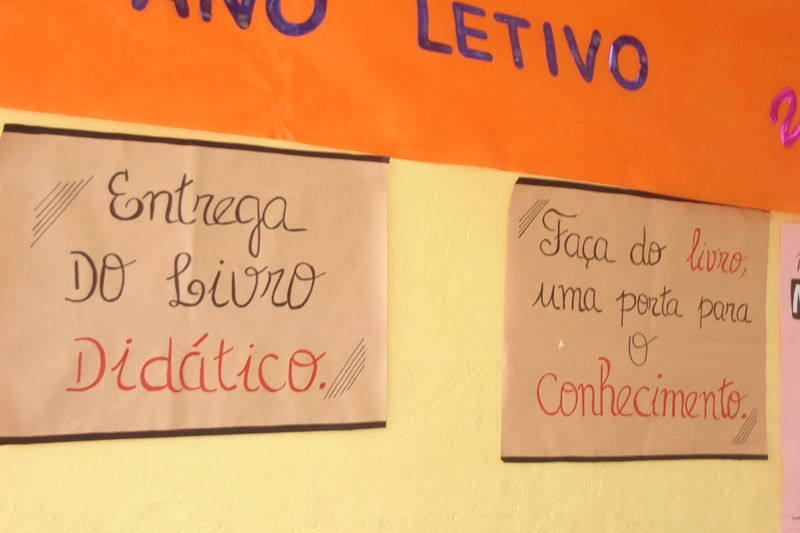 ANO LETIVO
Entrega
Do Livro
Didático.
Faça do livro,
uma porta para
o
conhecimento.